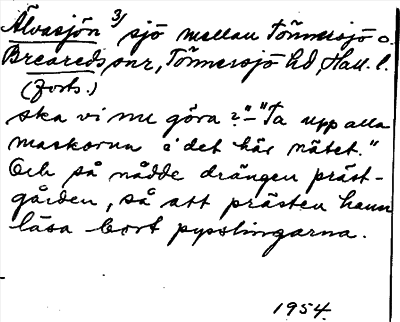 Älvasjön 3/ sjö mellan Tönnersjö o.
Breareds snr, Tönnersjö hd, Hall. l.
(forts.)
ska vi nu göra?" - "Ta upp alla
maskorna i det här nätet."
Och så nådde drängen präst-
gården, så att prästen hann
läsa bort pysslingarna.
1954.